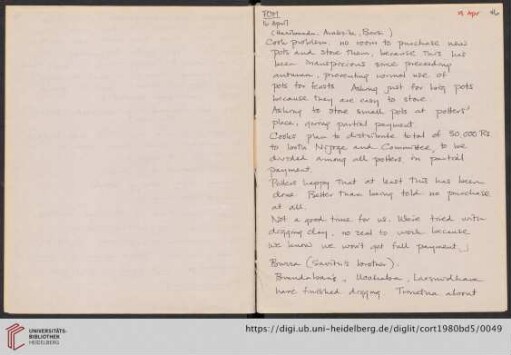 TOM
16 April
19 Apr 46
Cook problem. no room to purchase new
pots and store them, because this has
been inauspicious since preceding
autumn, preventing normal use of
pots for feasts. Asking just for big pots
because they are easy to store
Asking to store small pots at potters'
place, giving partial payment
Cooks plan to distribute total of 50,000 Rs
to and Committee, to be
divided among all potters in partial
payment.
Potters happy that at least this has been
done. Better than being told no purchase
at all.
Not a good time for us. We're tired with
digging clay, no zeal to work because
we know we won't get full payment.
(Savitri's brother).
have finished digging. about
UNIVERSITÄTS-
BIBLIOTHEK
HEIDELBERG
https://digi.ub.uni-heidelberg.de/diglit/cort1980bd5/0049